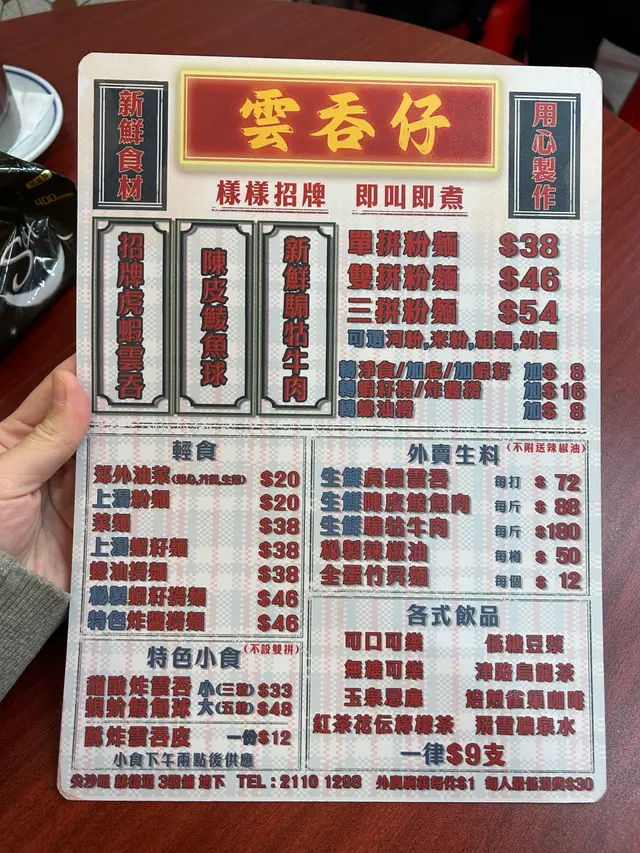 雲吞仔
新鮮食材
用心製作
樣樣招牌 即叫即煮
招牌虎蝦雲吞
陳皮鯪魚球
新鮮騸牯牛肉
單拼粉麵 $38
雙拼粉麵 $46
三拼粉麵 $54
可選河粉,米粉,粗麵,幼麵
轉淨食/加底/加蝦籽 加$ 8
轉蝦籽撈/炸醬撈 加$16
轉蠔油撈 加$ 8
輕食
郊外油菜 $20
上湯粉麵 $20
菜麵 $38
上湯蝦籽麵 $38
蠔油撈麵 $38
秘製蝦籽撈麵 $46
特色炸醬撈麵 $46
特色小食 (不設雙拼)
甜酸炸雲吞 小(三粒) $33
蜆蚧鯪魚球 大(五粒) $48
酥炸雲吞皮 一份$12
小食下午兩點後供應
外賣生料 (不附送辣椒油)
生鮮虎蝦雲吞 每打 $ 72
生鮮陳皮鯪魚肉 每斤 $ 88
生鮮騸牯牛肉 每斤 $180
秘製辣椒油 每樽 $ 50
全蛋竹昇麵 每個 $ 12
各式飲品
可口可樂 低糖豆漿
無糖可樂 津路烏龍茶
玉泉忌廉 焙煎雀巢咖啡
紅茶花伝檸檬茶 飛雪礦泉水
一律$9支
尖沙咀 赫德道 3號舖 地下 TEL:2110 1298 外賣每件$1 每人最低消費$30